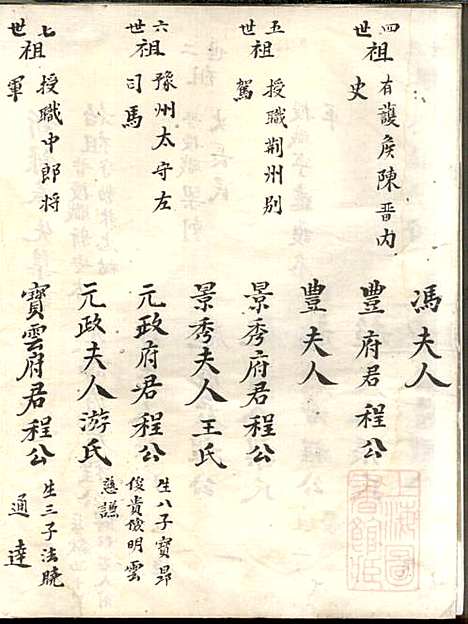 馮夫人
四世祖 有護廃陳晋内史 豐府君程公
豐夫人
五世祖 授職荊州别駕 景秀府君程公
景秀夫人王氏
六世祖 豫州太守左司馬 元政府君程公 生八子寶昂俊貴儉明雲慈謙
元政夫人游氏
七世祖 授職中郎将軍 寶雲府君程公 生三子法曉通達
上海图書館藏